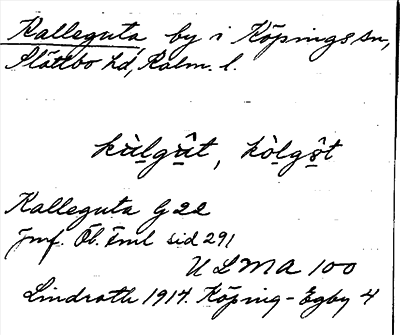 Kalleguta, by i Köpings sn,
Slättbo hd, Kalm. l.
kùlgût, kòlgôt
Kalleguta G22
Jmf. Öl. Äml sid 291
ULMA 100
Lindroth 1914. Köping-Egby 4